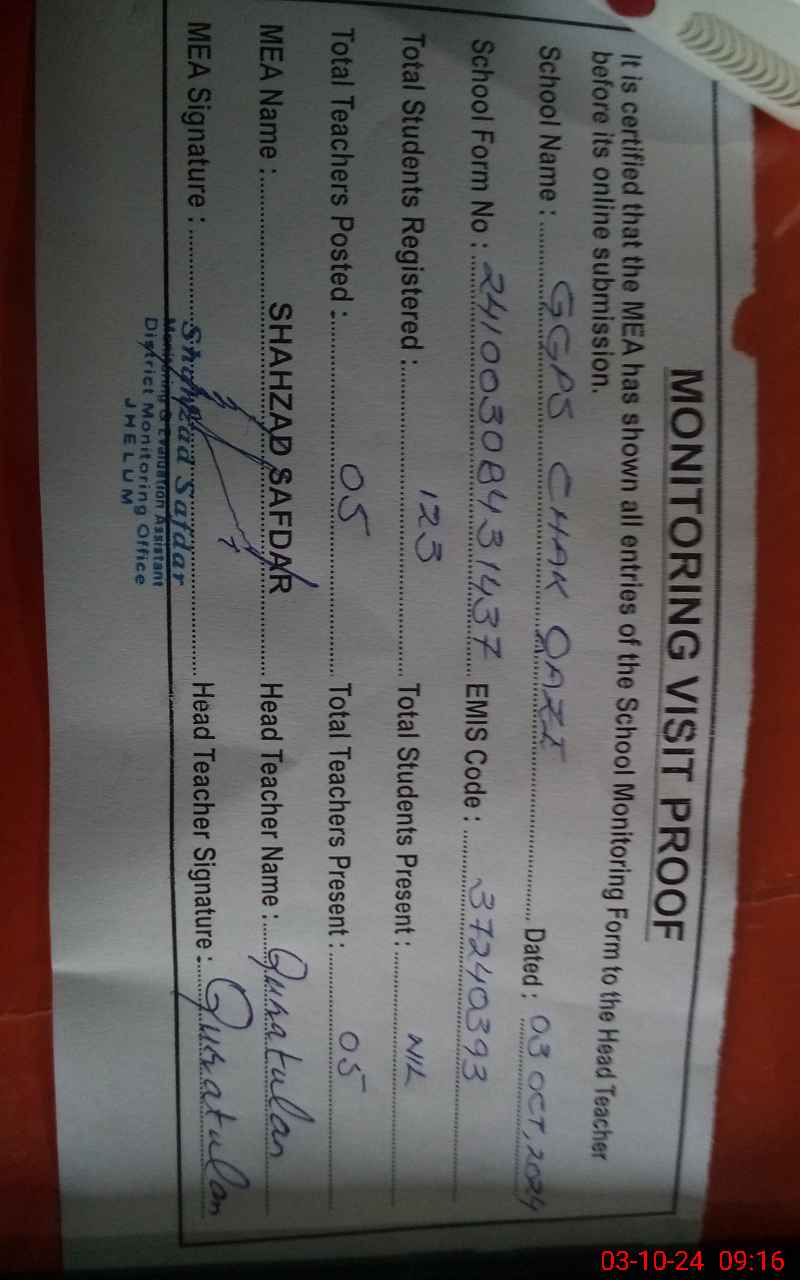 MONITORING VISIT PROOF
It is certified that the MEA has shown all entries of the School Monitoring Form to the Head Teacher
before its online submission.
School Name : GGPS CHAK QAZI Dated : 03 OCT, 2024
School Form No : 24100308431437 EMIS Code : 37240393
Total Students Registered : 123 Total Students Present : NIL
Total Teachers Posted : 05 Total Teachers Present : 05
MEA Name : SHAHZAD SAFDAR Head Teacher Name : Quratulan
MEA Signature : Head Teacher Signature : Quratulan
Shahzad Safdar
Monitoring & Evaluation Assistant
District Monitoring Office
JHELUM
03-10-24 09:16